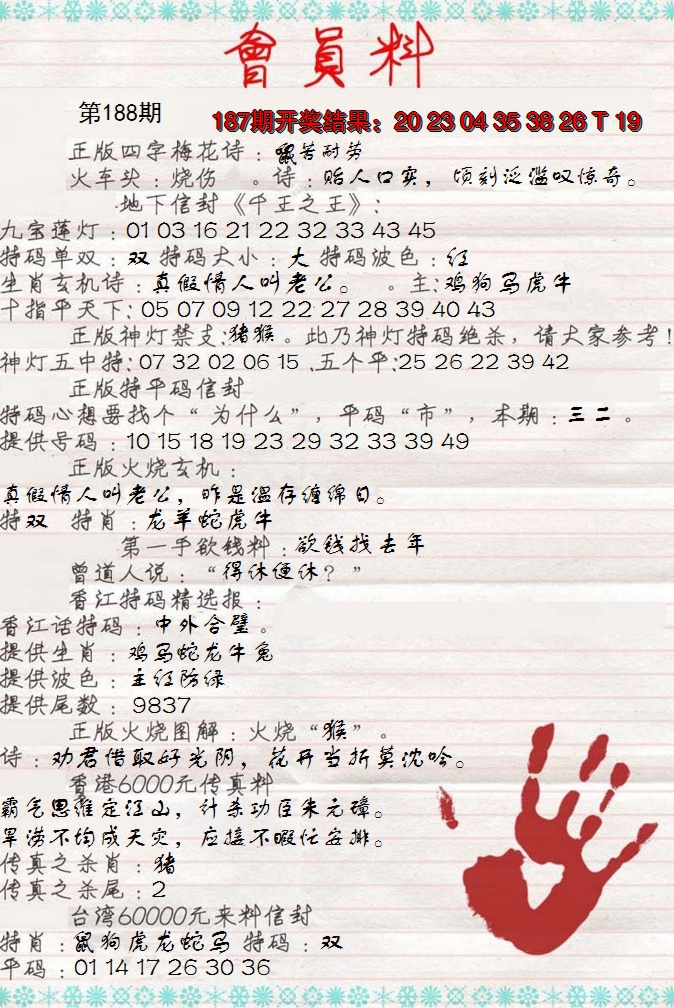 會員料
第188期
187期开奖结果：20 23 04 35 38 26 T 19
正版四字梅花诗：鼠苦耐劳
火车头：烧伤 。诗：贻人口实，顷刻泛滥叹惊奇。
地下信封《千王之王》:
九宝莲灯：01 03 16 21 22 32 33 43 45
特码单双：双 特码大小：大 特码波色：红
生肖玄机诗：真假情人叫老公。 。主:鸡狗马虎牛
十指平天下: 05 07 09 12 22 27 28 39 40 43
正版神灯禁支:猪猴。此乃神灯特码绝杀，请大家参考!
神灯五中特: 07 32 02 06 15 .五个平:25 26 22 39 42
正版特平码信封
特码心想要找个“为什么”，平码“市”，本期：三二。
提供号码：10 15 18 19 23 29 32 33 39 49
正版火烧玄机：
真假情人叫老公，昨是温存缠绵日。
特双 特肖：龙羊蛇虎牛
第一手欲钱料：欲钱找去年
曾道人说：“得休便休？”
香江特码精选报：
香江话特码：中外合璧。
提供生肖：鸡马蛇龙牛兔
提供波色：主红防绿
提供尾数：9837
正版火烧图解：火烧“猴”。
诗：劝君借取好光阴，花开当折莫沈吟。
香港6000元传真料
霸气思维定江山，计杀功臣朱元璋。
旱涝不均成天灾，应接不暇忙安排。
传真之杀肖：猪
传真之杀尾：2
台湾60000元来料信封
特肖：鼠狗虎龙蛇马 特码：双
平码：01 14 17 26 30 36